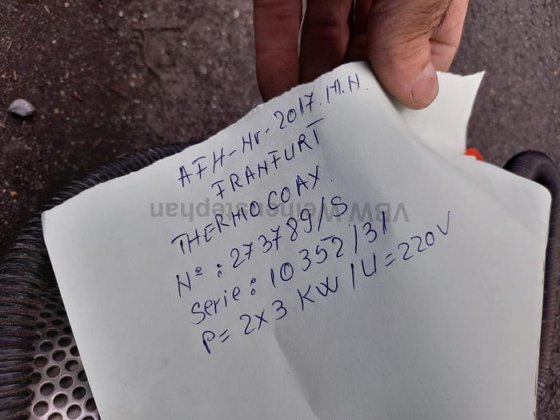 AFH-Nr-2017.M.H.
FRANFURT
THERMOCOAX.
Nº: 273789/S
Serie: 10352/31
P= 2x3 KW / U=220V
VBW Weihenstephan